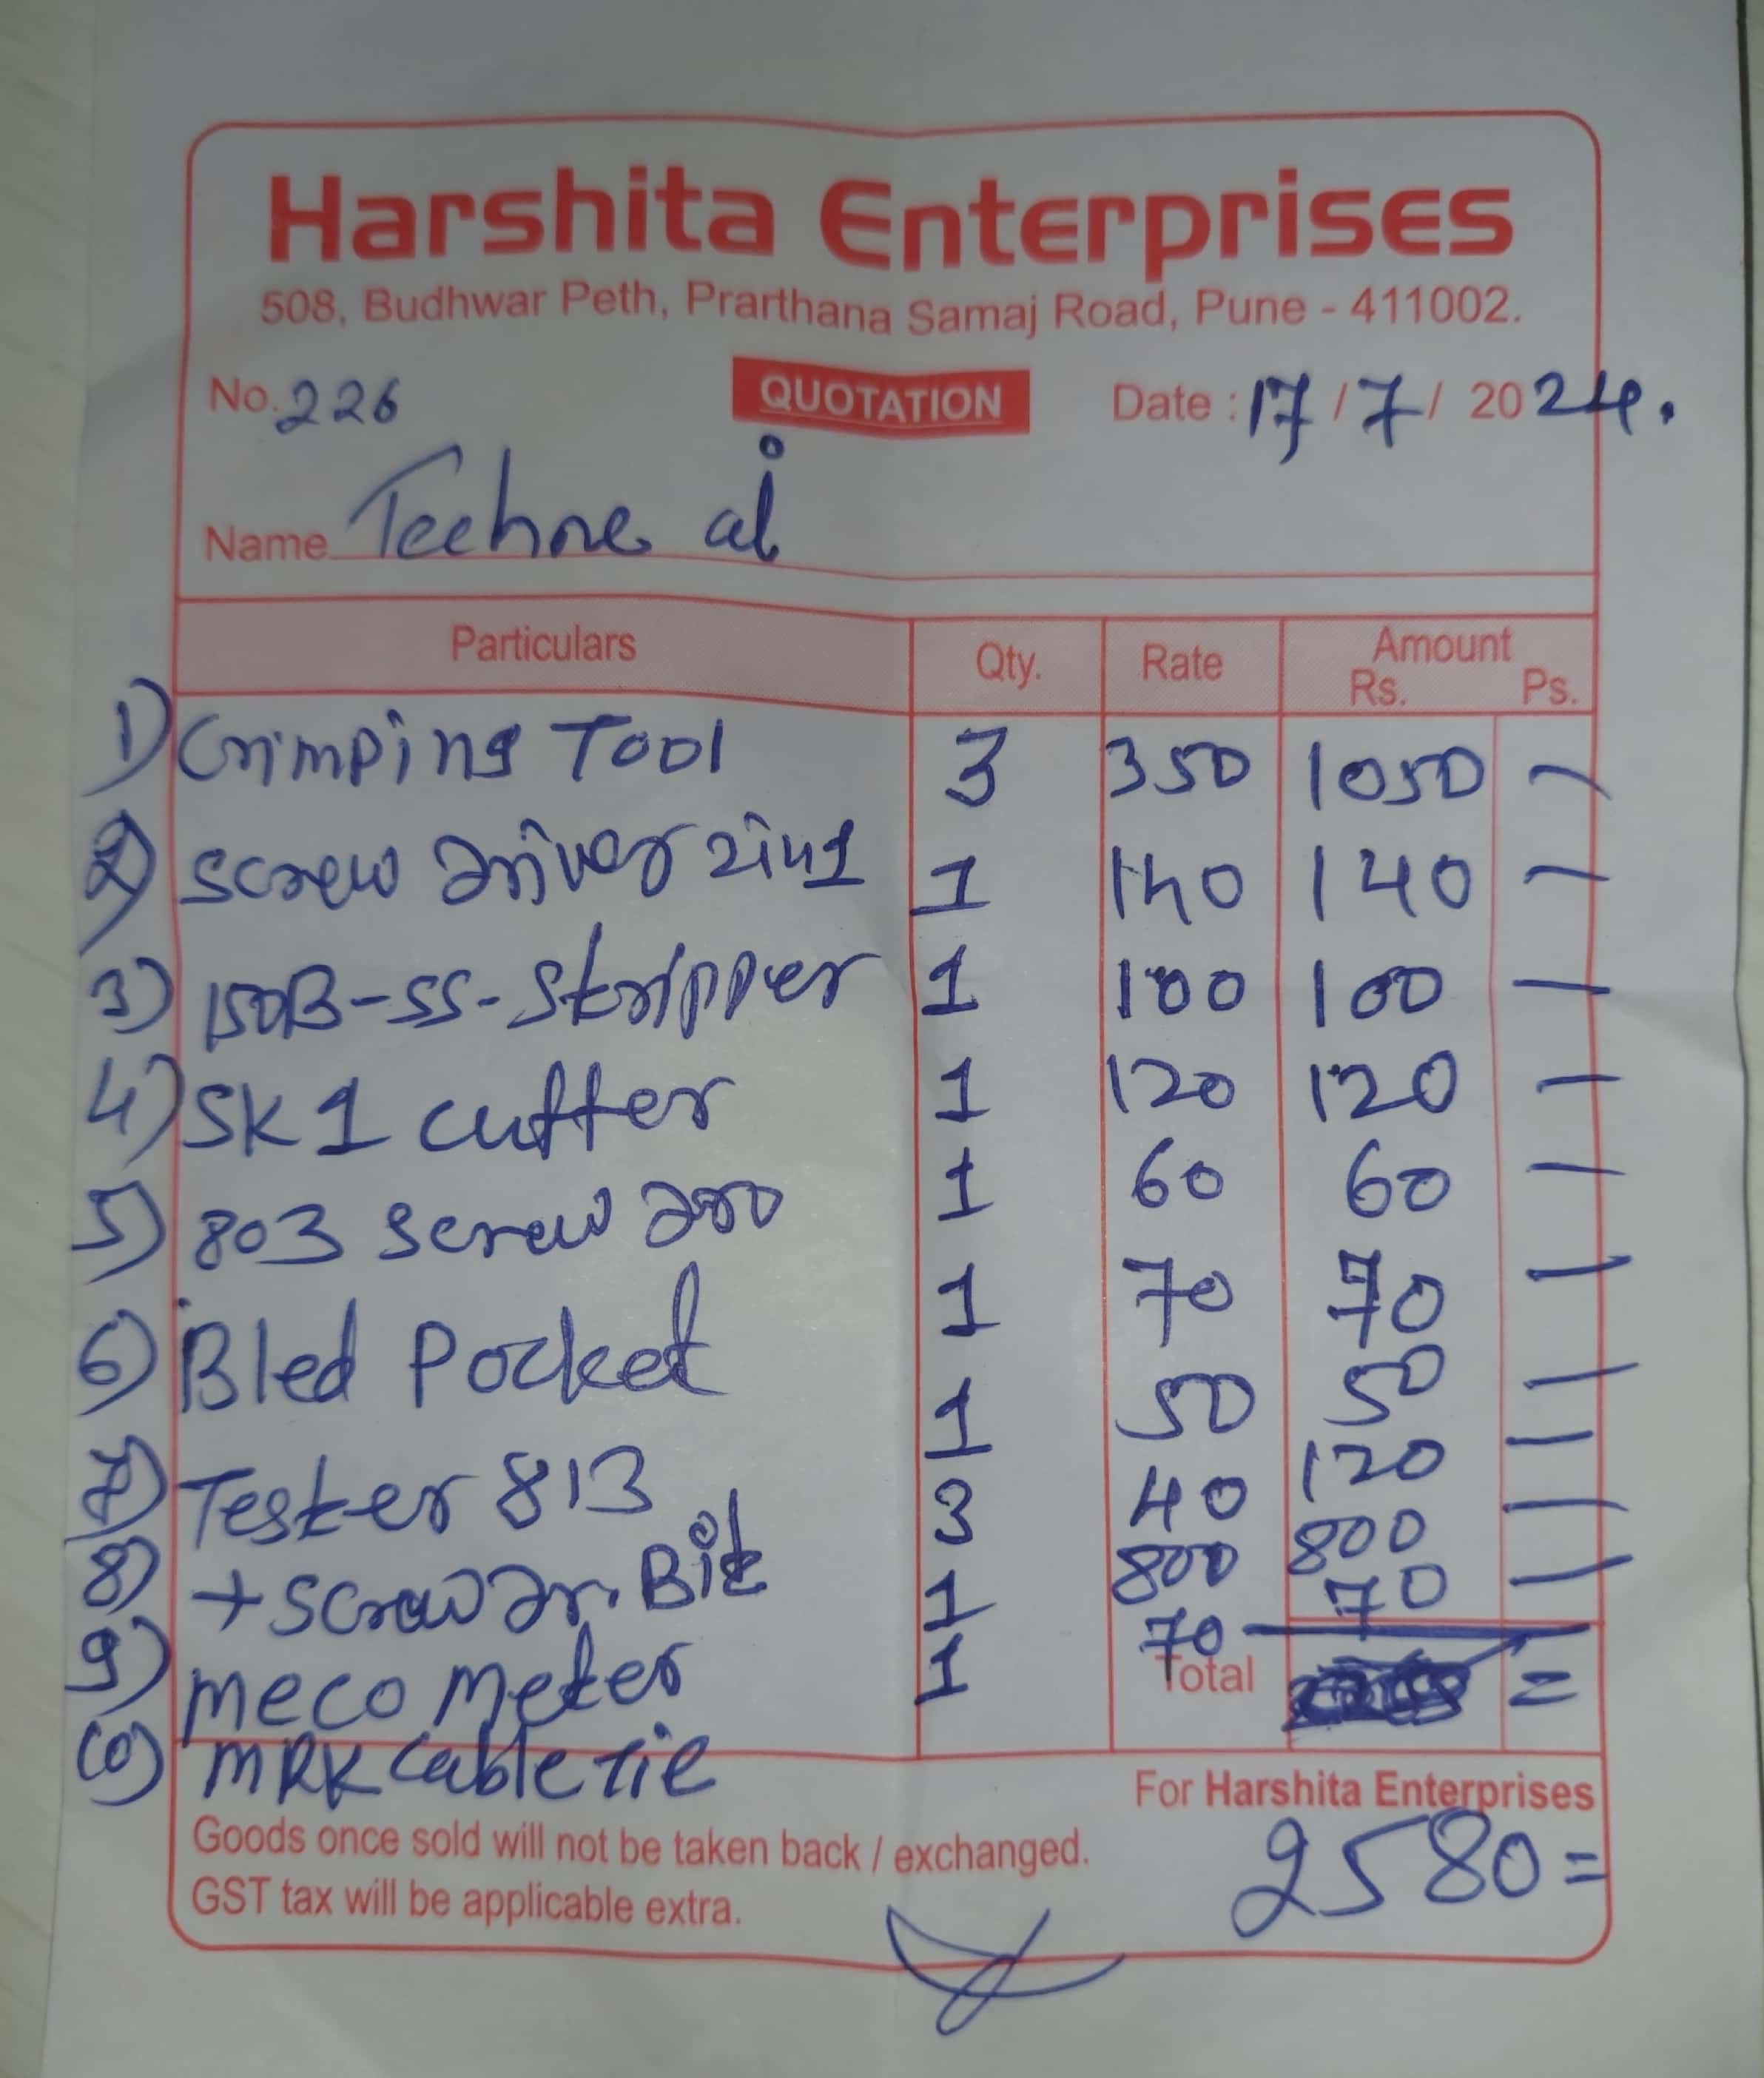 Harshita Enterprises
508, Budhwar Peth, Prarthana Samaj Road, Pune - 411002.
No. 226 QUOTATION Date : 17 / 7 / 2024.
Name Techne ai
Particulars Qty. Rate Amount
Rs. Ps.
1) Crimping Tool 3 350 1050 -
2) Screw Driver 2in1 1 140 140 -
3) 150B-SS-Stripper 1 100 100 -
4) SK 1 cutter 1 120 120 -
5) 803 Screw Dro 1 60 60 -
6) Bled Pocket 1 70 70 -
7) Tester 813 1 50 50 -
8) + Screw Dr. Bit 3 40 120 -
9) Meco Meter 1 800 800 -
10) MRK Cable Tie 1 70 70 -
Total =
For Harshita Enterprises
Goods once sold will not be taken back / exchanged.
2580 =
GST tax will be applicable extra.